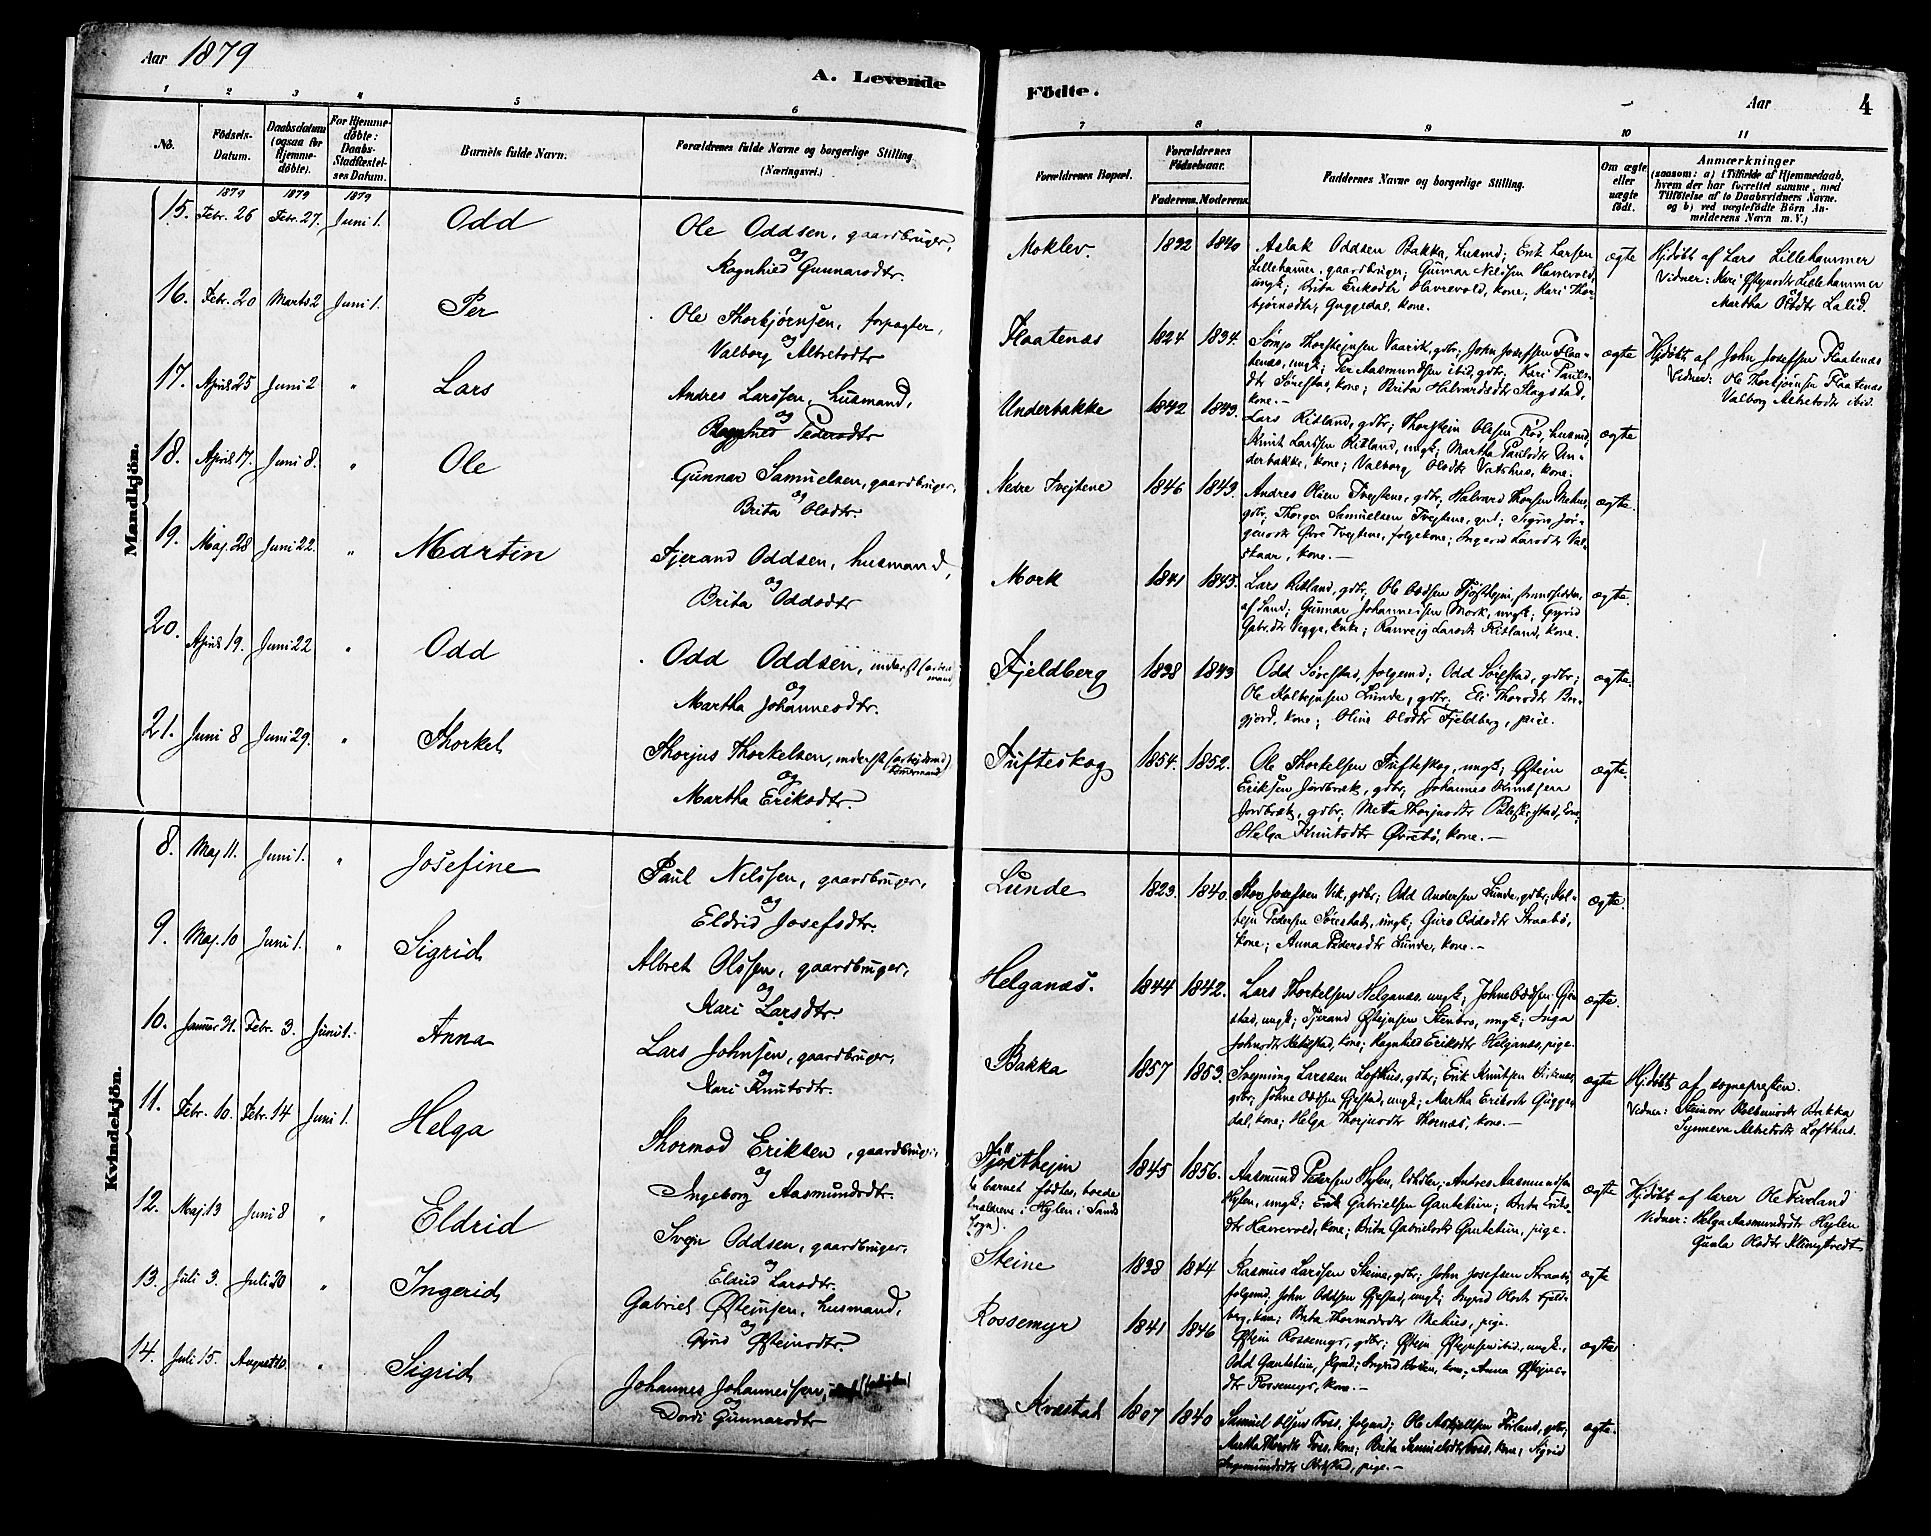 Aar 1879
A. Levende
Födte.
Aar
4
1 2 3 4 5 6 7 8 9 10 11
No.
Födsels-
Datum.
Daabsdatum
(ogsaa for
Hjemme-
døbte).
For Hjemme-
døbte:
Daabs-
Stadfæstel-
ses Datum.
Barnets fulde Navn.
Forældrenes fulde Navne og borgerlige Stilling
(Næringsvei.)
Forældrenes Bopæl.
Forældrenes
Födselsaar.
Faderens. Moderens.
Faddernes Navne og borgerlige Stilling.
Om ægte
eller
uægte
født.
Anmærkninger
(saasom: a) i Tilfælde af Hjemmedaab,
hvem der har forrettet samme, med
Tilföielse af to Daabsvidners Navne.
og b) ved uægtefödte Börn An-
melderens Navn m. V.)
Mandkjön.
1879 1879 1879
15. Febr. 26 Febr. 27. Juni 1. Odd
Ole Oddsen, gaardbruger,
og
Ragnhied Gunnarsdtr.
Moklev. 1832 1840
Aslak Oddsen Bakka, husmd; Erik Larsen
Lillehamer, gaardbruger; Gunnar Nilssen Havrevold,
ungk; Brita Eriksdtr Havrevold, kone; Kari Thor-
bjørnsdtr, Guggedal, kone.
ægte
Hjdøbt af Lars Lillehammer
Vidner: Kari Lillehammer
og
Martha Olsdtr Lalid.
16. Febr. 20 Marts 2 Juni 1. Per
Ole Thorbjørnsen, forpagter,
og
Valborg Alvetsdtr
Flaatenæs 1824 1834.
Sømjo Thorsteinsen Vaarvik, gdbr, John Josefsen Flaa-
tenæs, ungk; Per Aasmundsen ibid, gdbr, Kari Pauls-
dtr Sørestad, kone; Brita Halvardsdtr Slagstad,
kone. -
ægte
Hjdøbt af John Josefsen Flaatenæs
Vidner: Ole Thorbjørnsen Flaatenæs
Valborg Alvetsdtr ibid.
17. April 25 Juni 2 " Lars
Andres Larssen, husmand,
og
Ragnhied Pedersdtr
Underbakke 1842 1843.
Lars Ritland, gdbr; Thorstein Olssen Rød, husmd,
Knut Larssen Ritland, ungk; Martha Paulsdtr Un-
derbakke, kone; Valborg Olsdtr Vatshus, kone.
ægte
18. April 17. Juni 8. " Ole
Gunnar Samuelsen, gaardbruger,
og
Brita Olsdtr.
Nedre Tvejtene 1846 1843.
Andres Olsen Tvejtene, gdbr; Halvard Thorsen Mehus,
gdbr, Thorger Samuelsen Tvejtene, gut; Sigrid Jør-
gensdtr Øvre Tvejtene, folgekone; Ingerid Larsdtr Val-
skaar, kone. -
ægte.
19. Maj 28 Juni 22. " Martin
Tjerand Oddsen, husmand,
og
Brita Oddsdtr
Mork 1841 1845.
Lars Ritland, gdbr, Ole Oddsen Fjøsthejm,
af Sand; Gunnar Johannessen Mork, ungk; Gyrid
Gabr.dtr Vigga, enke; Ranveig Larsdtr Ritland, kone.
ægte.
20. April 19. Juni 22 " Odd
Odd Oddsen, inderst (arbeid
mand)
og
Martha Johannesdtr.
Fjeldberg 1838 1843
Odd Sørestad, folgemd; Odd Sørestad, gdbr;
Ole Koltejnsen Lunde, gdbr; Eli Thorsdtr Ber-
gjord, kone; Oline Olsdtr Fjeldberg, pige.
ægte.
21. Juni 8 Juni 29. " Thorkel
Thorjus Thorkelsen, inderst (arbejdsmd)
tømmermand
og
Martha Eriksdtr.
Tufteskog 1854. 1852.
Ole Thorkelsen Tufteskog, ungk; Østejn
Eriksen Jordbræk, gdbr, Johannes Knutsen
Jordbræk, gdbr, Metta Thorjusdtr Bleskestad, kone,
Helga Knutsdtr Øvrebø, kone. -
ægte.
Kvindekjön.
8. Maj 11. Juni 1. " Josefine
Paul Nilssen, gaardbruger,
og
Eldrid Josefsdtr.
Lunde 1823. 1840.
Thor Josefsen Vik, gdbr; Odd Andersen Lunde, gdbr; Kol-
tejn Pedersen Sørestad, ungk; Guro Oddsdtr Straabø,
kone; Anna Pedersdtr Lunde, kone. -
ægte.
9. Maj. 10 Juni 1. " Sigrid
Albret Olssen, gaardbruger,
og
Kari Larsdtr.
Helganæs. 1844 1842.
Lars Thorkelsen Helganæs, ungk; Johne Oddsen Gje-
stad, ungk; Tjerand Østejnsen Stenbro, ungk; Inga
Johnsdtr Ketilstad, kone; Ragnhild Eriksdtr Helganæs, pige.
ægte.
10. Januar 31. Febr. 3. Juni 1. Anna
Lars Johnsen, gaardbruger,
og
Kari Knutsdtr.
Bakka 1857 1853.
Svejning Larssen Lofthus, gdbr; Erik Knutsen Birkenæs,
gdbr, Johne Oddsen Gjestad, ungk; Martha Eriksdt Gugge-
dal, kone; Helga Thorjusdtr Thornæs, kone. -
ægte
Hjdøbt af sognepresten.
Vidner: Steinvor Kolbensdtr Bakka
Synneva Alvetsdtr Lofthus.
11. Febr. 10. Febr. 14 Juni 1. Helga
Thormod Eriksen, gaardbruger
og
Ingeborg Aasmundsdtr.
Fjøsthejm
(barnet fødtes, boede
forældrene i Hylen i Sands
sogn).
1845 1856.
Aasmund Pedersen Hylen, Andres Aasmundsen
Hylen, ungk; Erik Gabrielsen Gautetun; Brita Eriks-
dtr Havrevold, kone; Brita Gabrielsdt Gautetun, pige.
ægte
Hjdøbt af lærer Ole Fivland
Vidner: Helga Aasmundsdtr Hylen
Gunla Olsdtr Klungtvedt
12. Maj 13 Juni 8 " Eldrid
Svejn Oddsen, gaardbruger,
og
Eldrid Larsdtr.
Steine 1838 1844
Rasmus Larssen Steine, gdbr; John Josefsen Straabø,
folgemd, John Oddsen Gjestad, ungk; Sigrid Olsdt Fjeld-
berg, kone; Brita Thormodsdtr Mehus, pige.
ægte
13. Juli 3. Juli 20 " Ingerid
Gabriel Østejnsen, husmand,
og
Gyrid Østejnsdtr.
Rossemyr 1841 1846
Østejn Rossemyr, gdbr; Østejn Østejnsen ibid, ungk,
Odd Gautetun, flgmd; Ingrid kone; Anna Østejns-
dtr Rossemyr, kone. -
ægte
14. Juli 15. August 10. " Sigrid
Johannes Johannessen,
og
Dordi Gunnarsdtr
Kvæstad 1807 1840
Samuel Olsen Foss, folgemd; Ole Askjelsen Førland, gdbr;
Martha Thorsdtr Foss, kone; Brita Samuelsdtr Foss, kone; Sigrid
Ingemundsdtr Kvæstad, pige. -
ægte.